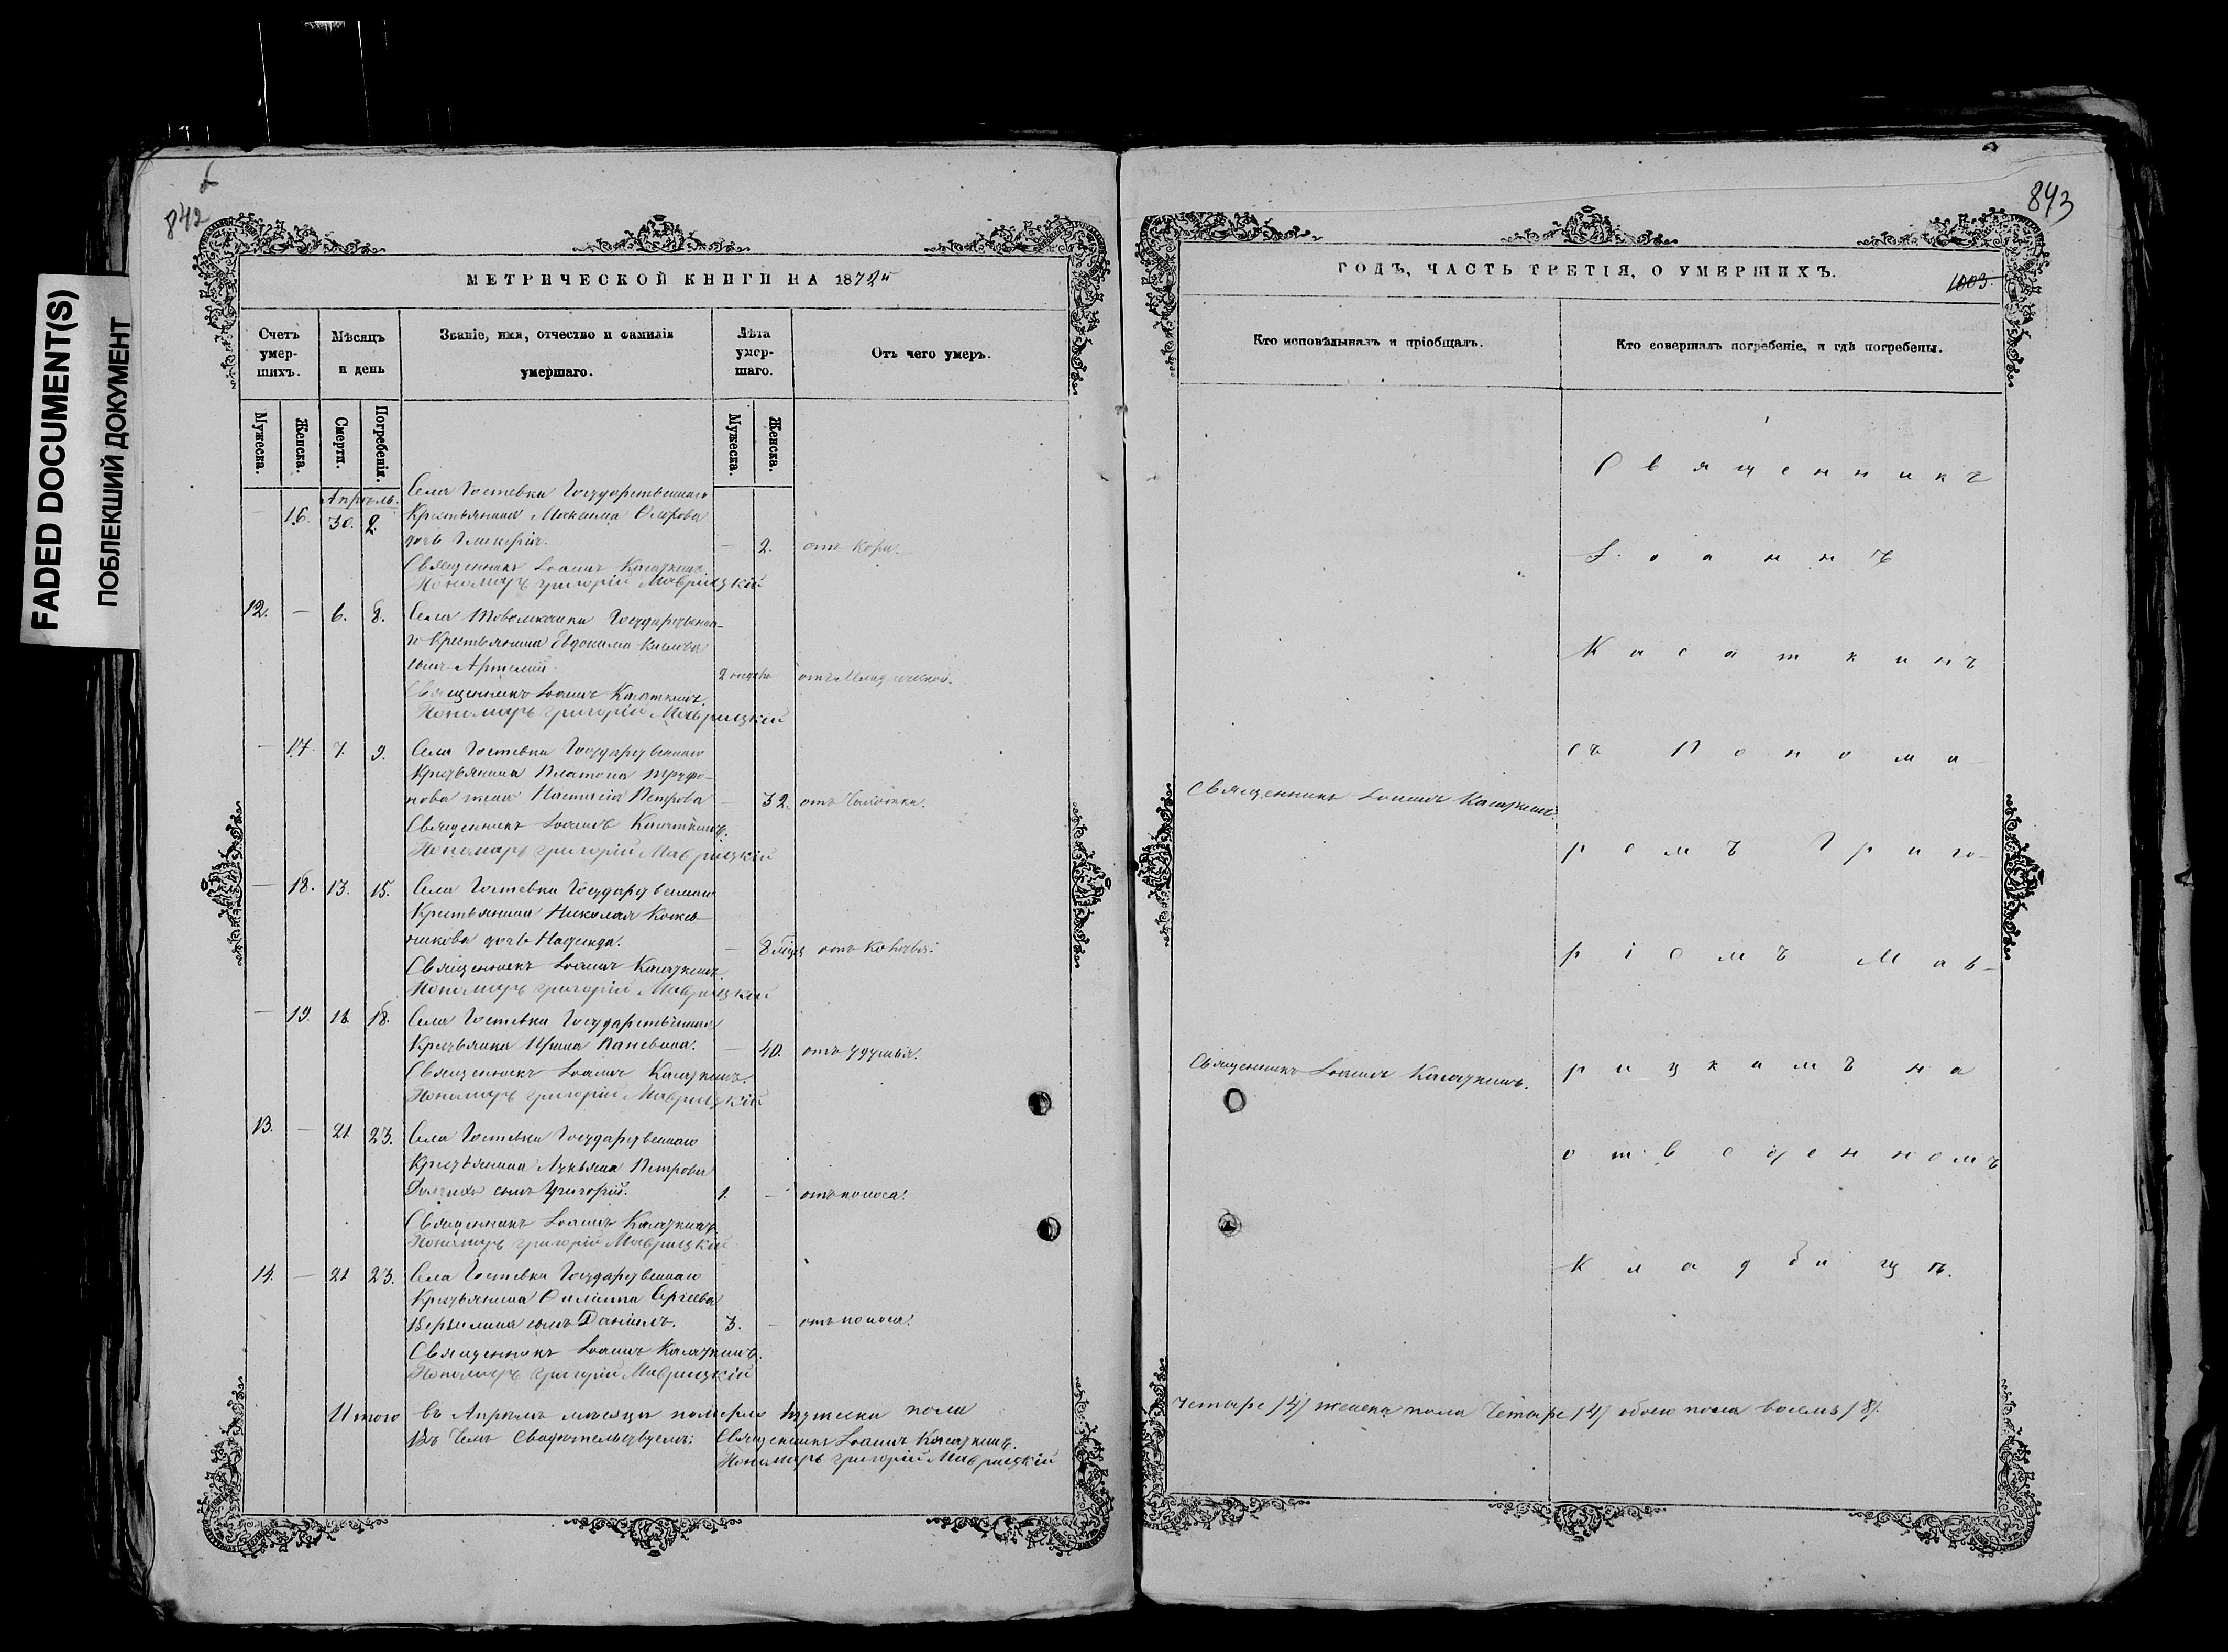 842
FADED DOCUMENT(S)
ПОБЛЕКШИЙ ДОКУМЕНТ
МЕТРИЧЕСКОЙ КНИГИ НА 1872й
Счетъ умер-шихъ.
Мѣсяцъ и день
Званіе, имя, отчество и фамилія умершаго.
Лѣта умер-шаго.
Отъ чего умеръ.
Мужеска.
Женска.
Смерти.
Погребенія.
Мужеска.
Женска.
Апрѣль.
Села Гостевки Государственнаго
— 16. 30. 2. Крестьянина Максима
дочь Гликерія. — 2. отъ кори.
Священникъ Іоаннъ Касаткинъ.
Пономарь Григорій Маврицкій
12. — 6. 8. Села Государственна-
го Крестьянина Евдокима
сынъ Артемій. 2 недѣль отъ Младенческой.
Священникъ Іоаннъ Касаткинъ.
Пономарь Григорій Маврицкій
— 17. 7. 9. Села Гостевки Государственнаго
Крестьянина Платона Труфо-
нова жена Настасія Петрова — 32. отъ Чахотки.
Священникъ Іоаннъ Касаткинъ.
Пономарь Григорій Маврицкій
— 18. 13. 15. Села Гостевки Государственнаго
Крестьянина Николая Кожев-
никова дочь Надежда. — 8 отъ
Священникъ Іоаннъ Касаткинъ.
Пономарь Григорій Маврицкій
— 19. 18. Села Гостевки Государственная
Крестьянка — 40. отъ удушья.
Священникъ Іоаннъ Касаткинъ.
Пономарь Григорій Маврицкій
13. — 21. 23. Села Гостевки Государственнаго
Крестьянина Лукьяна Петрова
сынъ Григорій. 1. — отъ поноса.
Священникъ Іоаннъ Касаткинъ.
Пономарь Григорій Маврицкій
14. — 21. 23. Села Гостевки Государственнаго
Крестьянина Филиппа Сергеева
сынъ Даніилъ. 3. — отъ поноса.
Священникъ Іоаннъ Касаткинъ.
Пономарь Григорій Маврицкій
Итого въ Апрѣлѣ мѣсяцѣ померло мужеска пола
Въ чемъ свидѣтельствуемъ: Священникъ Іоаннъ Касаткинъ.
Пономарь Григорій Маврицкій
843
ГОДЪ, ЧАСТЬ ТРЕТІЯ, О УМЕРШИХЪ.
1003.
Кто исповѣдывалъ и пріобщалъ.
Кто совершалъ погребеніе, и гдѣ погребены.
Священникъ
Іоаннъ
Касаткинъ
съ Понома-
Священникъ Іоаннъ Касаткинъ.
ремъ Григо-
ріемъ Мав-
Священникъ Іоаннъ Касаткинъ.
рицкимъ на
отведенномъ
кладбищѣ.
четыре /4/ женска пола четыре /4/ обоего пола восемь /8/.